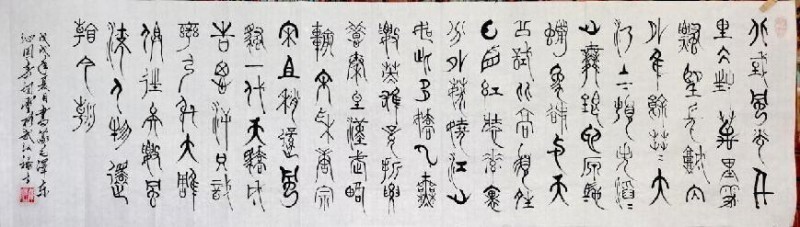 北國風光千
里冰封萬里雪
飄望長城內
外惟餘莽莽大
河上下頓失滔滔
山舞銀蛇原馳
蠟象欲與天
公試比高須晴
日看紅裝素裹
分外妖嬈江山
如此多嬌引無
數英雄競折腰
惜秦皇漢武略
輸文采唐宗
宋祖稍遜風
騷一代天驕成
吉思汗只識
彎弓射大雕
俱往矣數風
流人物還
看今朝
戊戌年夏月書毛澤東
沁園春詞雪於武漢